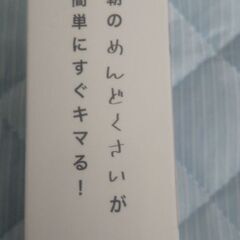 朝のめんどくさいが
簡単にすぐキマる！